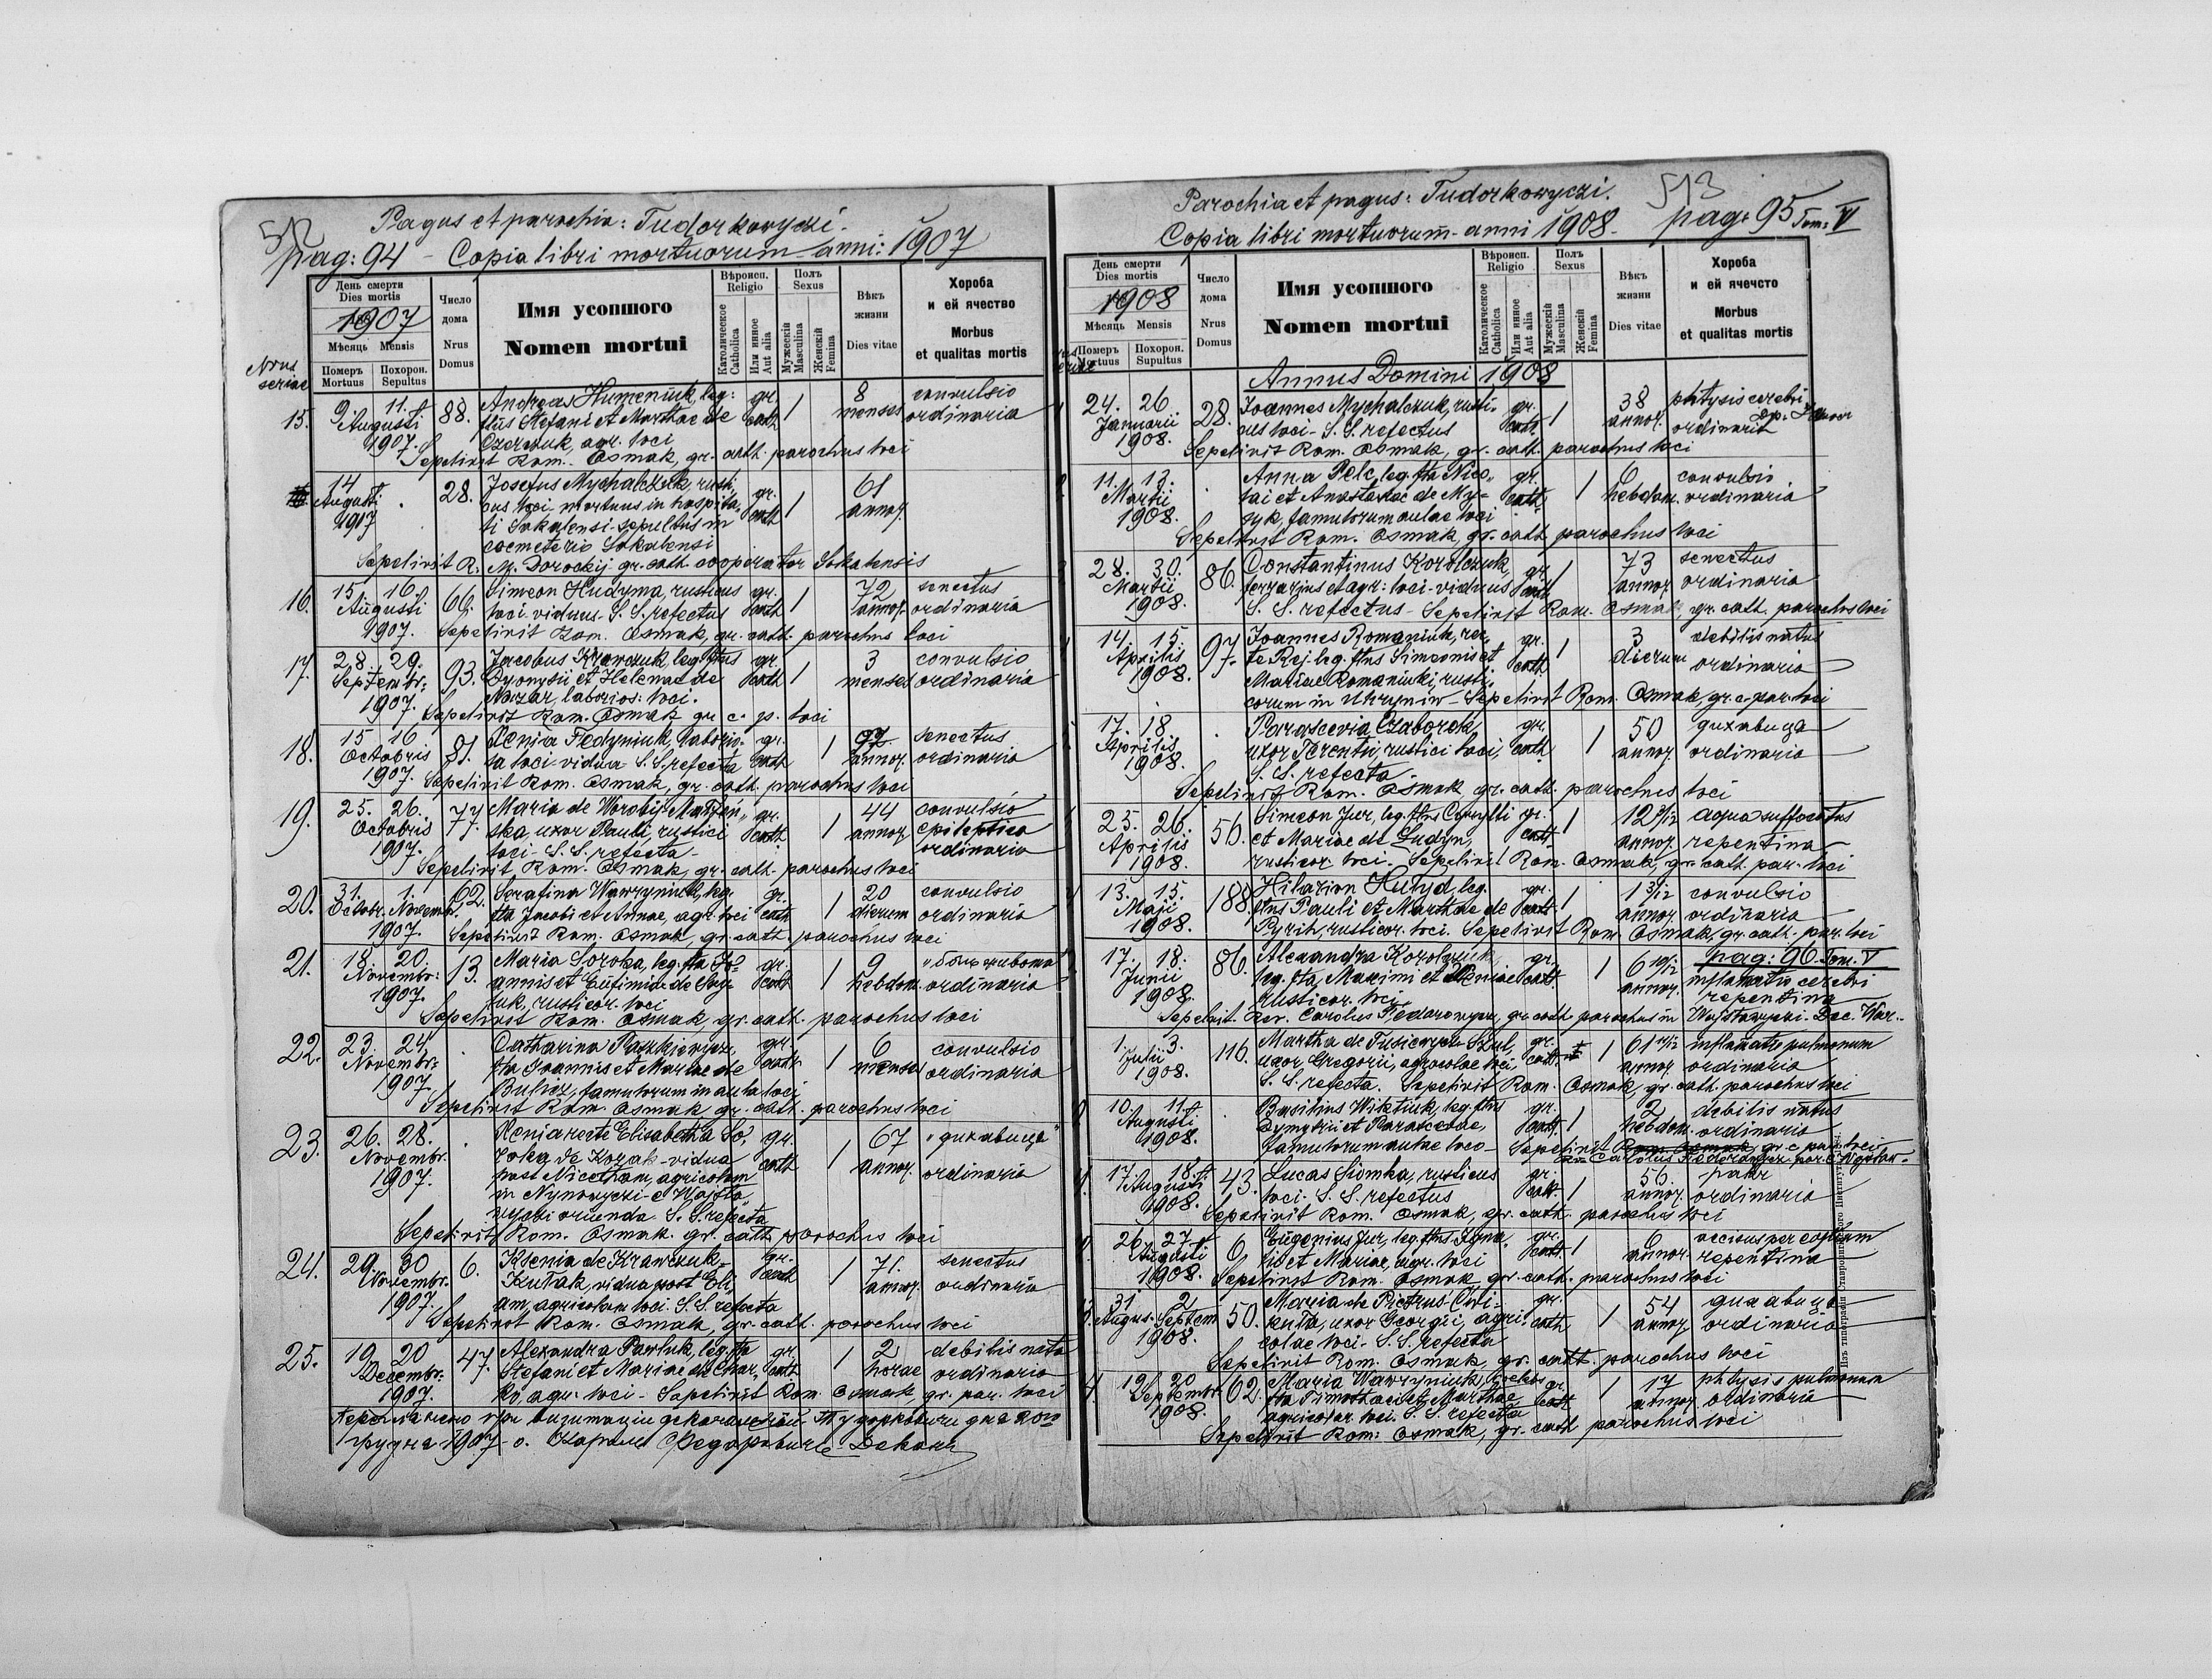 512
Pagus et parochia: Tudorkowyczi.
pag: 94 - Copia libri mortuorum anni: 1907
Nrus seriae
День смерти
Dies mortis
1907
Мѣсяць Mensis
Померъ Mortuus
Похорон. Sepultus
Число дома
Nrus Domus
Имя усопшого
Nomen mortui
Вѣроисп.
Religio
Католическое Catholica
Или инное Aut alia
Полъ
Sexus
Мужескій Masculina
Женскій Femina
Вѣкъ жизни
Dies vitae
Хороба
и ей ячество
Morbus
et qualitas mortis
15. 9. 11. 88. Andreas Humeniuk, leg: gr. 1 8 convulsio
Augusti flius Stefani et Marthae de cath menses ordinaria
1907. Czerewuk, agr. loci
Sepelivit Rom. Osmak, gr. cath. parochus loci
14 . 28. Josefus Mychalczuk, rusti- gr. 1 61
Augusti cus loci mortuus in hospita- cath annor.
1907 li Sokalensi sepultus in
coemeterio Sokalensi
Sepelivit R. M. Dorockij gr. cath cooperator Sokalensis
16. 15. 16. 66. Simeon Hudyma, rusticus gr. 1 72 senectus
Augusti loci viduus S. S. refectus cath annor. ordinaria
1907. Sepelivit Rom. Osmak, gr. cath. parochus loci
17. 28. 29. 93. Jacobus Krawczuk, leg. flius gr. 1 3 convulsio
Septembr: Dyonysii et Helenae de cath menses ordinaria
1907. Nazar, laborios: loci.
Sepelivit Rom. Osmak gr c. p. loci
18. 15 16 81. Xenia Fedyniuk, laborio- gr. 1 92 senectus
Octobris sa loci vidua S. S. refecta cath annor. ordinaria
1907. Sepelivit Rom. Osmak, gr. cath. parochus loci
19. 25. 26. 77. Maria de Worobij Matyień- gr. 1 44 convulsio
Octobris ska uxor Pauli, rustici cath. annor epileptica
1907. loci - S. S. refecta - ordinaria
Sepelivit Rom. Osmak, gr. cath. parochus loci
20. 31. 1. 62. Serafina Wawryniuk, leg. gr. 1 20 convulsio
Octobr. Novembr. flia Jacobi et Annae, agr. loci cath dierum ordinaria
1907. Sepelivit Rom. Osmak, gr. cath. parochus loci
21. 18. 20. 13. Maria Soroka, leg. flia Jo- gr. 1 9 "боль живота"
Novembr: annis et Eufimiae de cath hebdom. ordinaria
1907. rusticor. loci
Sepelivit Rom. Osmak, gr. cath. parochus loci
22. 23. 24 . Catharina Paszkiewycz, gr. 1 6 convulsio
Novembr: flia Joannis et Mariae de cath mense ordinaria
1907 famulorum in aula loci
Sepelivit Rom. Osmak gr. cath. parochus loci
23. 26. 28. . Xenia recte Elisabetha So- gr. 1 67 "дихавиця"
Novembr. roka de Kozak - vidua cath annor. ordinaria
1907. post Nicetham, agricolam
in Nynowyczi e
oriunda. S. S. refecta
Sepelivit Rom. Osmak. gr. cath parochus loci
24. 29. 30 6. Ksenia de Krawczuk gr. 1 71. senectus
Novembr. vidua post Eli- cath annor. ordinaria
1907. am, agricolam loci. S. S. refecta
Sepelivit Rom. Osmak, gr. cath. parochus loci
25. 19. 20 47. Alexandra Pawluk, leg. flia gr. 1 2 debilis nata
Decembr. Stefani et Mariae de cath. horae ordinaria
1907. agr. loci - Sepelivit Rom. Osmak gr. par. loci
при визитации деканальной Тудорковичи дня
грудня 1907 о. Кароль Федорович Деканъ
513
Parochia et pagus: Tudorkowyczi.
Copia libri mortuorum - anni 1908 - pag: 95 Tom: V
День смерти
Dies mortis
1908
Мѣсяць Mensis
Померъ Mortuus
Похорон. Supultus
Число дома
Nrus Domus
Имя усопшого
Nomen mortui
Вѣроисп.
Religio
Католическое Catholica
Или инное Aut alia
Полъ
Sexus
Мужескій Masculina
Женскій Femina
Вѣкъ жизни
Dies vitae
Хороба
и ей ячечсто
Morbus
et qualitas mortis
Annus Domini 1908
24. 26 28. Joannes Mychalczuk, rusti- gr. 1 38 phtysis cerebri
Januarii cus loci - S. S. refectus cath. annor. ordinaria
1908. Sepelivit Rom. Osmak, gr. cath. parochus loci
11. 13. . Anna Pelc, leg. flia Nico- gr. 1 6 convulsio
Martii lai et Anastasiae de My- cath. hebdom. ordinaria
1908. famulorum aulae loci
Sepelivit Rom. Osmak, gr. cath parochus loci
28. 30. 86. Constantinus Korolczuk, gr. 1 73 senectus
Martii ferrarius et agr: loci - viduus cath annor ordinaria
1908. S. S. refectus - Sepelivit Rom. Osmak, gr. cath. parochus loci
14. 15. 97. Joannes Romaniuk, rec- gr. 1 3 debilis natus
Aprilis te Rej. leg. flius Simeonis et cath. dierum ordinaria
1908. Mariae Romaniuki, rusti-
corum in Uhrynów - Sepelivit Rom. Osmak, gr. c. par. loci
17. 18 . Parascevia Czaborok, gr. 1 50 дихавица
Aprilis uxor Terentii, rustici loci, cath. annor. ordinaria
1908. S. S. refecta.
Sepelivit Rom. Osmak, gr. cath. parochus loci
25. 26. 56. Simeon Jur, leg. flius Cyrylli gr. 1 12 3/12 aqua suffocatus
Aprilis et Mariae de Ludyn, cath. annor repentina
1908. rusticor. loci. Sepelivit Rom. Osmak, gr. cath. par. loci
13. 15. 188. Hilarion Hutyd, leg. gr. 1 1 3/12 convulsio
Maji flius Pauli et Marthae de cath. annor. ordinaria
1908. Pyrih, rusticor. loci. Sepelivit Rom. Osmak, gr. cath. par. loci
pag: 96. Tom. V
17. 18. 86. Alexandra Korolczuk, gr. 1 6 10/12 inflamatio cerebri
Junii leg. flia Maximi et Xeniae cath. annor. repentina
1908. rusticor. loci
Sepelivit. Rev. Carolus Fedorowycz, gr. cath parochus in Dec. War.
1. 3. 116. Martha de Fusiewycz Szul, gr. 1 61 inflamatio pulmonum
Julii uxor Gregorii, agricolae loci, cath. annor ordinaria
1908. S. S. refecta. Sepelivit Rom. Osmak, gr. cath. parochus loci
10. 11. . Basilius Wiktiuk, leg. flius gr. 1 2 debilis natus
Augusti Dymytrii et Parasceviae, cath. hebdom. ordinaria
1908. famulorum aulae loco - Sepelivit Rom. Osmak gr. c. par. loci
Carolus Fedorowycz par.
17. 18. 43. Lucas Siomka, rusticus gr. 1 56. ракъ
Augusti loci. S. S. refectus cath. annor. ordinaria
1908. Sepelivit Rom. Osmak, gr. cath. parochus loci
26. 27 6 Eugenius Jur, leg. flius Igna- gr. 1 6 occisus per equam
Augusti tii et Mariae, agr. loci cath. annor. repentina
1908. Sepelivit Rom. Osmak, gr. cath. parochus loci
31 2 50. Maria de Pietruś Cwi- gr. 1 54 дихавица
Augus. Septem uxor Georgii, agri- cath annor ordinaria
1908. colae loci. S. S. refecta
Sepelivit Rom. Osmak, gr. cath. parochus loci
19. 20 62. Maria Wawryniuk, gr. 1 17 phtysis pulmonum
Septembr flia Timothaei et Marthae cath annor. ordinaria
1908. agricolar. loci. S. S. refecta
Sepelivit Rom: Osmak, gr. cath parochus loci
Изъ типографіи Ставропигійского Института